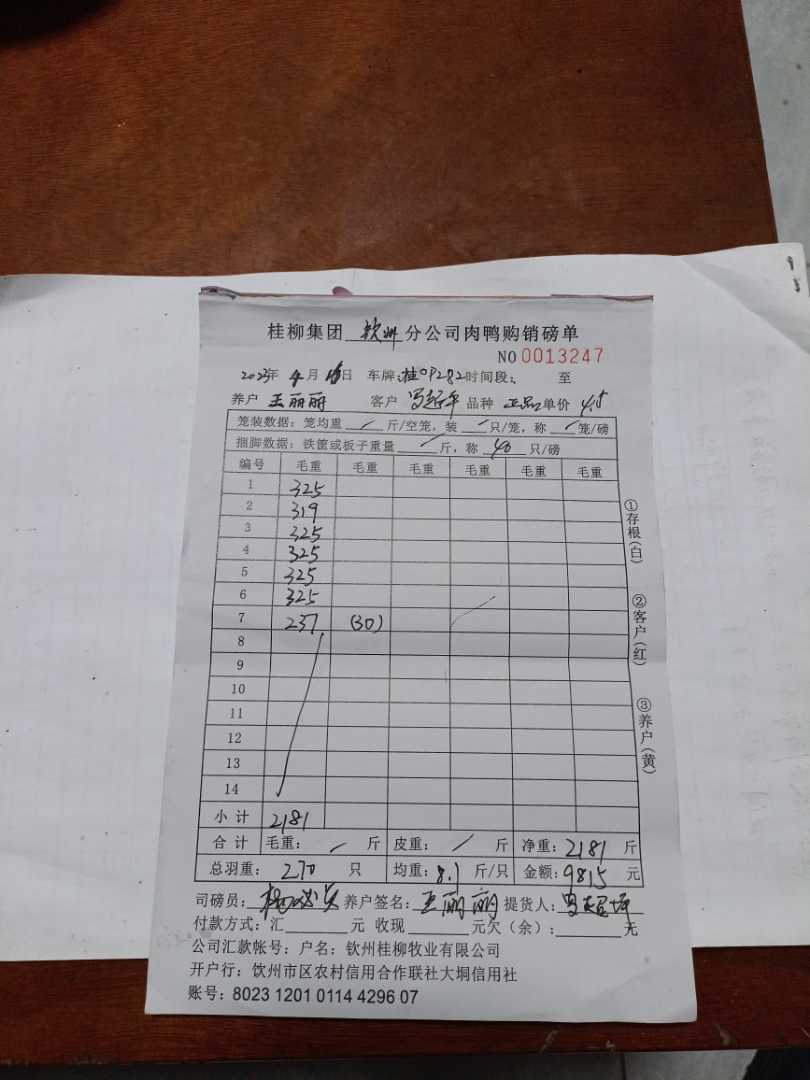 桂柳集团 钦州 分公司肉鸭购销磅单
NO 0013247
2025年 4月 日 车牌: 桂 时间段: 至
养户 王丽丽 客户 品种 正品 单价 4.5
笼装数据: 笼均重 / 斤/空笼, 装 / 只/笼, 称 / 笼/磅
捆脚数据: 铁篦或板子重量 / 斤, 称 40 只/磅
编号 毛重 毛重 毛重 毛重 毛重 毛重
1 325
2 319
3 325
4 325
5 325
6 325
7 237 (30)
8
9
10
11
12
13
14
小计 2181
合计 毛重: / 斤 皮重: / 斤 净重: 2181 斤
总羽重: 270 只 均重: 8.1 斤/只 金额: 9815 元
司磅员: 养户签名: 王丽丽 提货人:
付款方式: 汇 元 收现 元欠(余): 元
公司汇款帐号: 户名: 钦州桂柳牧业有限公司
开户行: 饮州市区农村信用合作联社大垌信用社
账号: 8023 1201 0114 4296 07
①存根(白)
②客户(红)
③养户(黄)